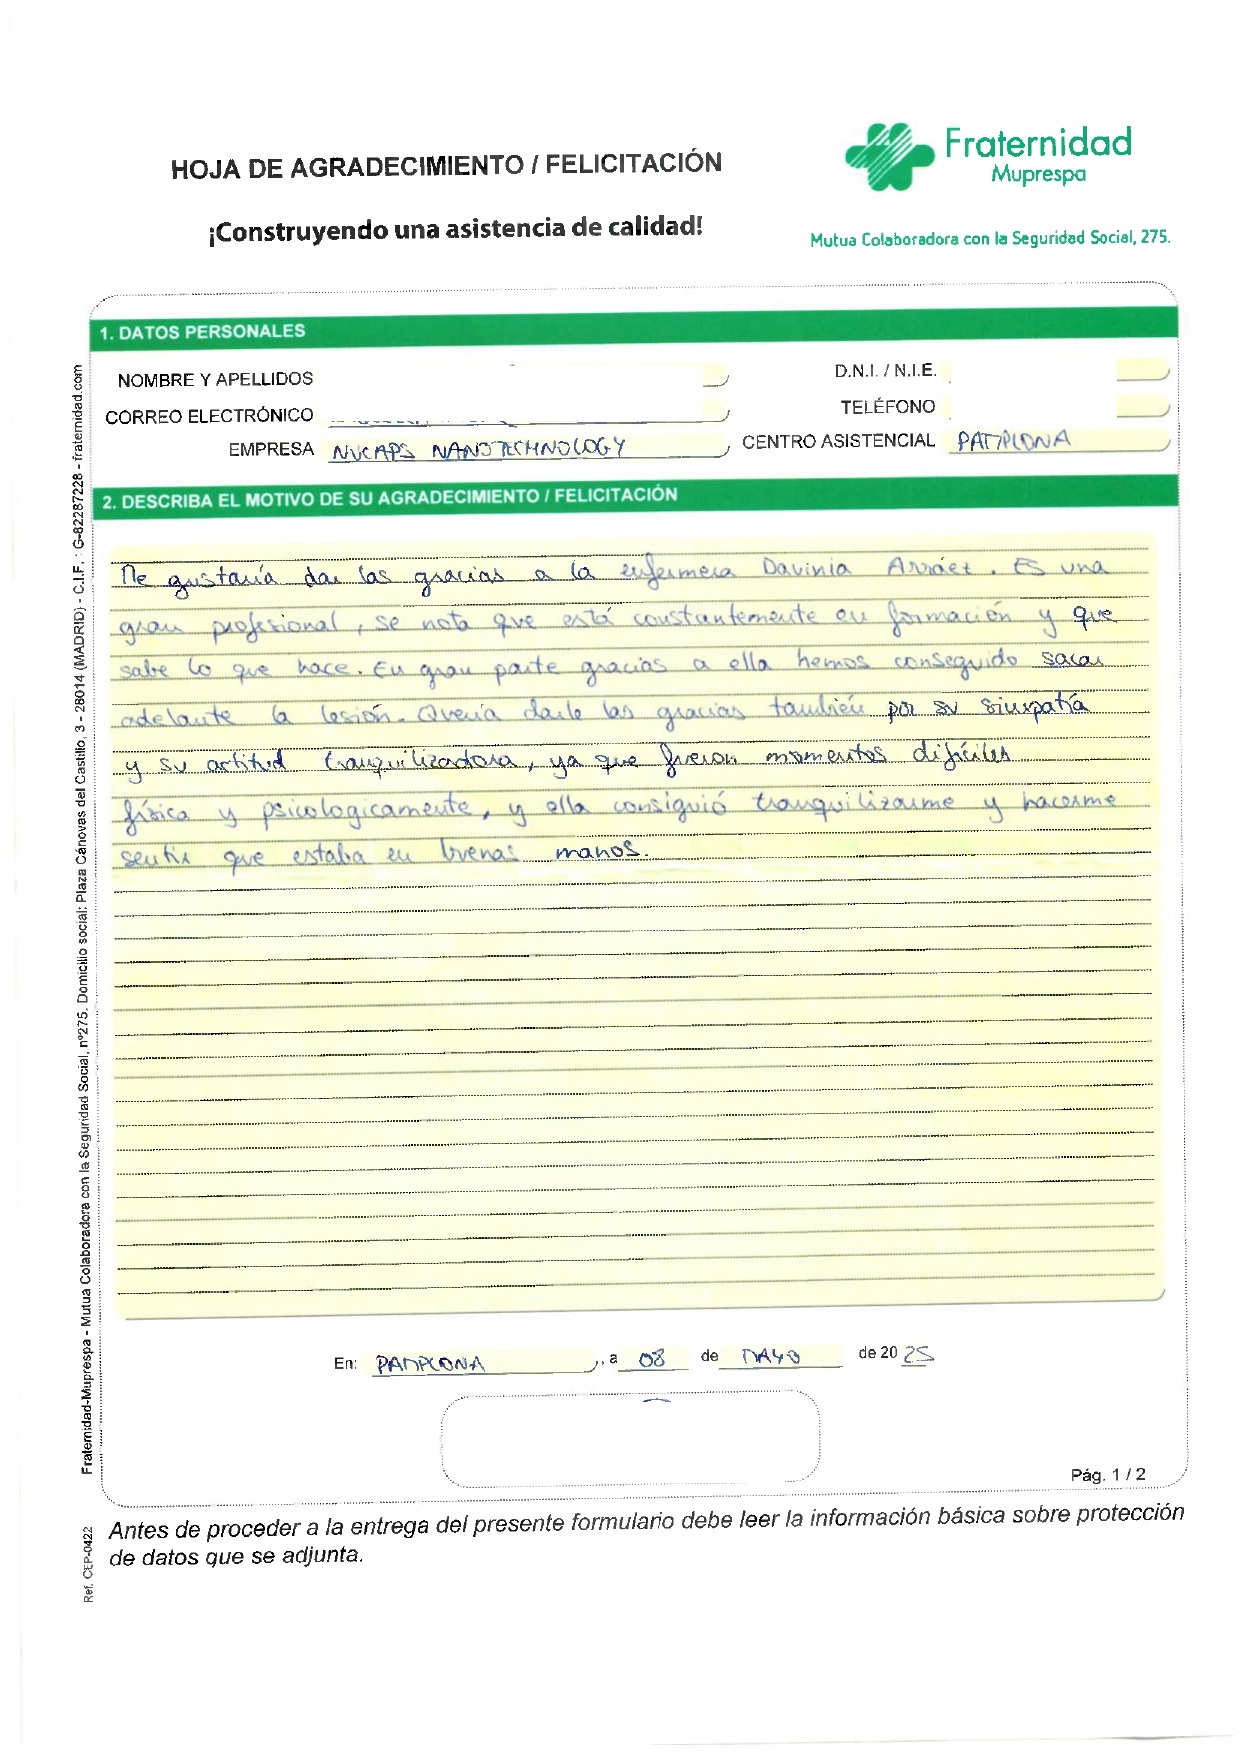 HOJA DE AGRADECIMIENTO / FELICITACIÓN
¡Construyendo una asistencia de calidad!
Fraternidad
Muprespa
Mutua Colaboradora con la Seguridad Social, 275.
1. DATOS PERSONALES
NOMBRE Y APELLIDOS
D.N.I. / N.I.E.
CORREO ELECTRÓNICO
TELÉFONO
EMPRESA NUCAPS NANOTECHNOLOGY
CENTRO ASISTENCIAL PAMPLONA
2. DESCRIBA EL MOTIVO DE SU AGRADECIMIENTO / FELICITACIÓN
Me gustaría dar las gracias a la enfermera Davinia Arráez. Es una
gran profesional, se nota que está constantemente en formación y que
sabe lo que hace. En gran parte gracias a ella hemos conseguido sacar
adelante la lesión. Quería darle las gracias también por su simpatía
y su actitud tranquilizadora, ya que fueron momentos difíciles
física y psicologicamente, y ella consiguió tranquilizarme y hacerme
sentir que estaba en buenas manos.
En: PAMPLONA, a 08 de MAYO de 2025
Pág. 1 / 2
Antes de proceder a la entrega del presente formulario debe leer la información básica sobre protección
de datos que se adjunta.
Fraternidad-Muprespa - Mutua Colaboradora con la Seguridad Social, nº275. Domicilio social: Plaza Cánovas del Castillo, 3 - 28014 (MADRID) - C.I.F. : G-82287228 - fraternidad.com
Ref. CEP-0422